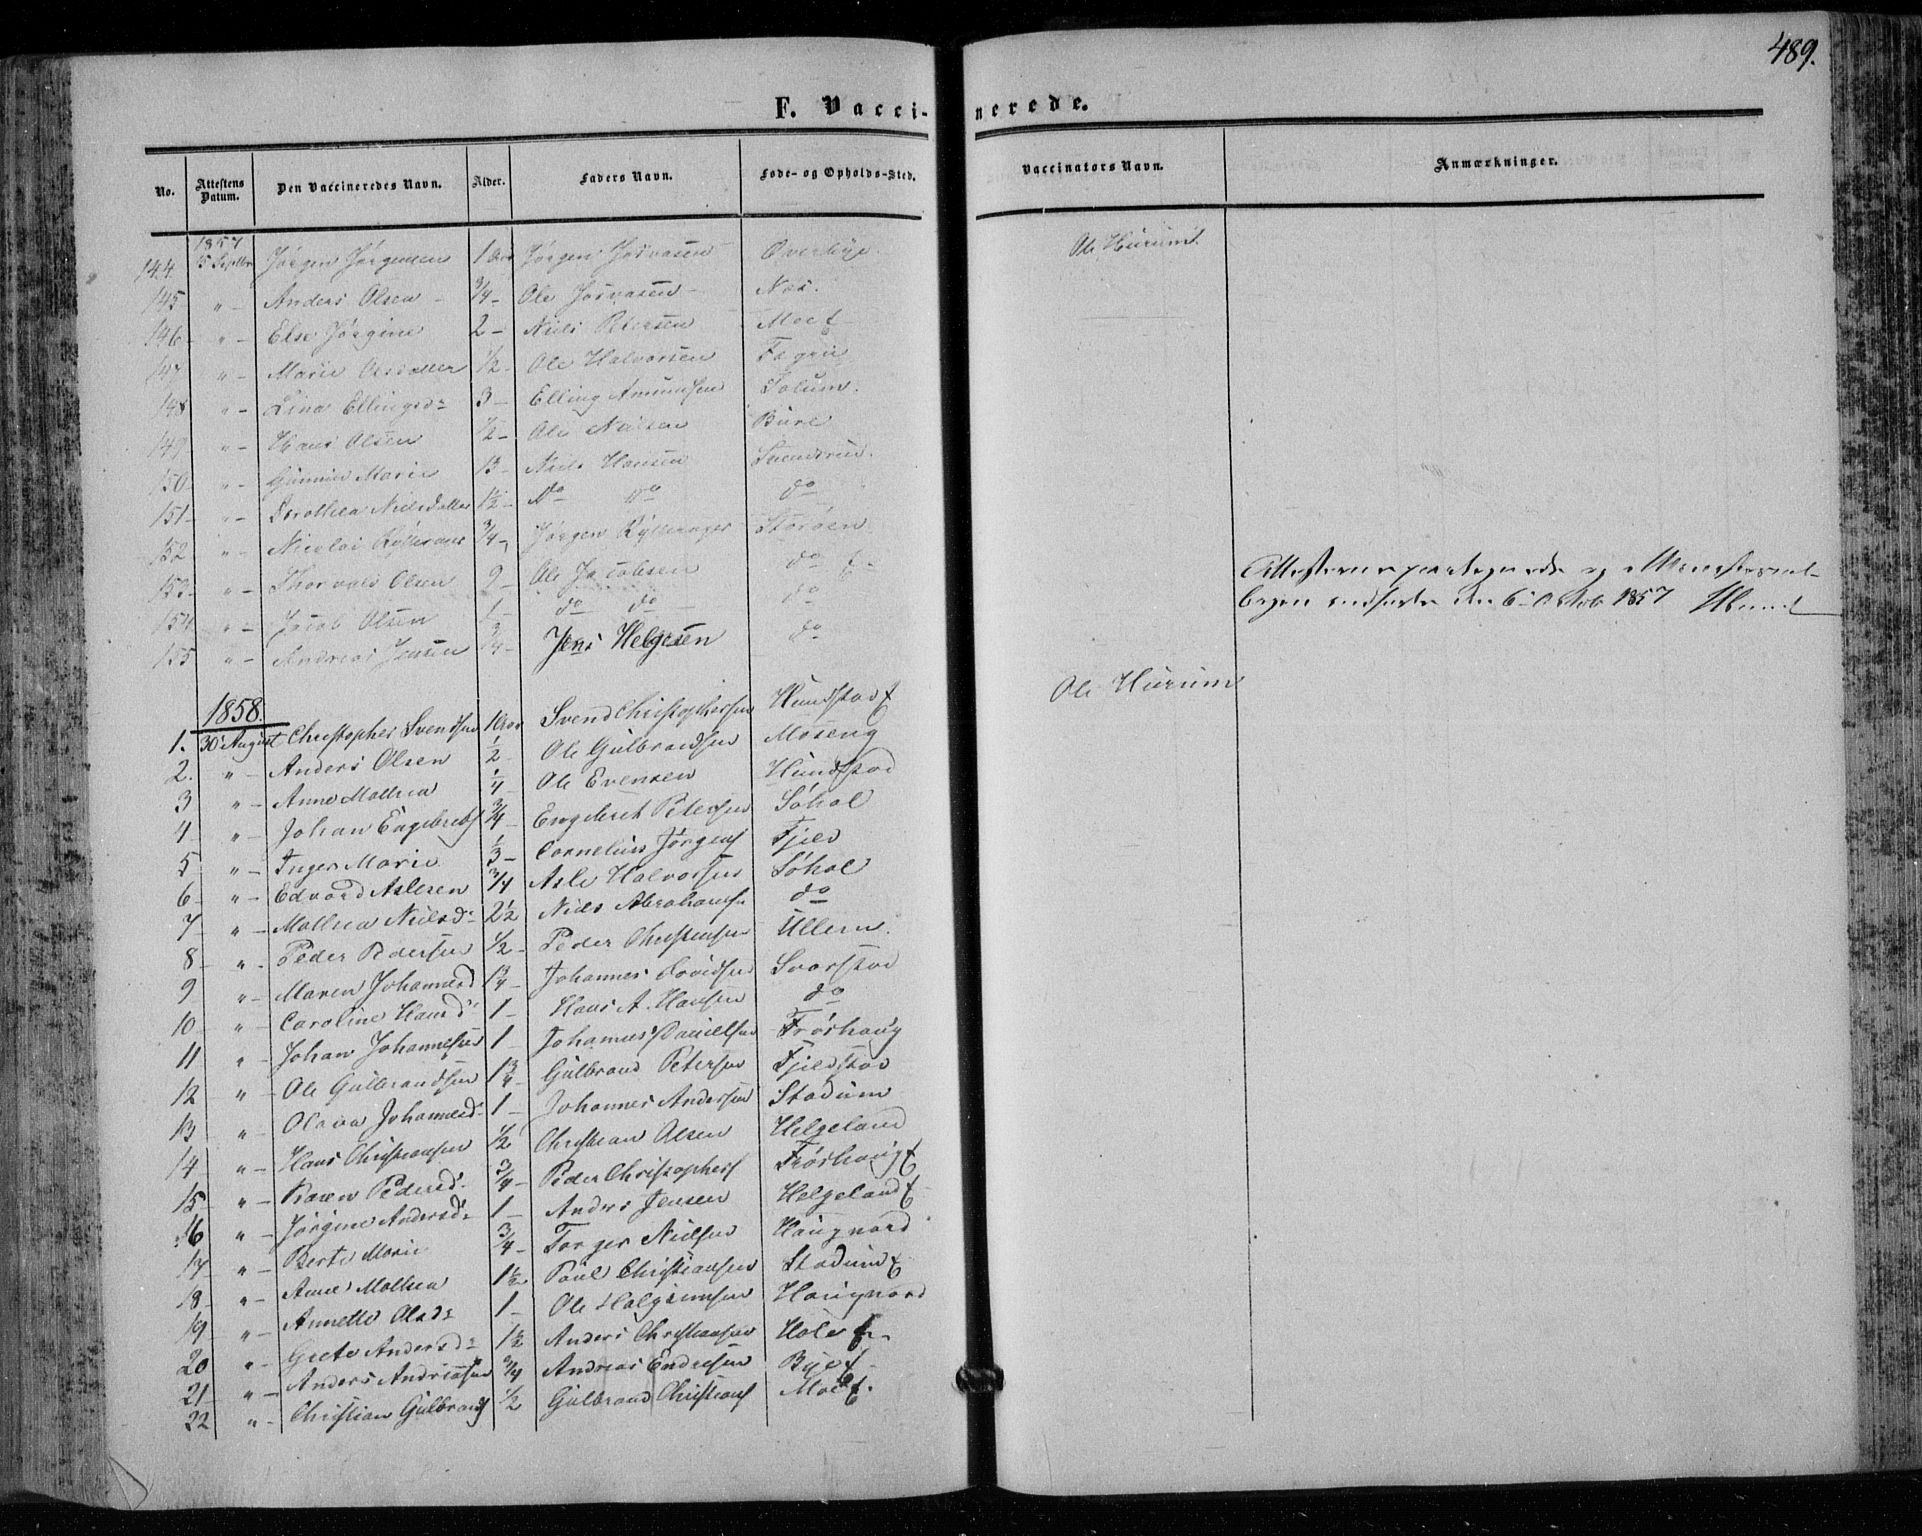 489.
F. Vaccinerede.
No. Attestens Datum. Den Vaccineredes Navn. Alder. Faders Navn. Føde- og Opholds-Sted. Vaccinators Navn. Anmærkninger.
1857
144 15 Septbr Jørgen Jørgensen 1 Aar Jørgen Josvasen Overbye. Ole Hurum
145 " - Anders Olsen - 3/4 - Ole Josvasen - Næs.
146 " - Else Jørgine 2 - Niels Petersen Moe
147 " - Marie Olsdatter 1/2 - Ole Halvorsen
148 " - Lina Ellingsd: 3 - Elling Amundsen
149 " - Hans Olsen 1/2 - Ole Nielsen Bure
150 " - Marie Niels Hansen Svensrud.
151 - " - Dorothea Nielsdatter 1 1/2 - Do Do do
152 " - Nicolai 3/4 - Jørgen Storøen
153 - " - Thorvald Olsen 9 - Ole Jacobsen do
154 " - Jacob Olsen 1 - do do do
155 " - Andreas Jensen 3/4 - Jens Helgesen do
Attesterne og
den 6 Octob 1857
1858.
1. 30 August Christopher Svendsen 1 Aar Svend Christophersen Hundstad Ole Hurum
2. " - Anders Olsen 1/2 Ole Gulbrandsen Moseng
3 " - Anne Mathea 1/4 - Ole Evensen Hundstad
4 " - Johan Engebrets 3/4 - Engebret Petersen Søhol
5 " - Inger Marie 1/3 - Cornelius Jørgens Fjeld
6 - " - Edvard Aslesen 3/4 Asle Halvorsen Søhol
7 - " - Mathea Nielsd: 2 1/2 Niels Abrahams do
8 - " - Peder Pedersen 1/2 - Peder Christensen Ullern.
9 " - Maren Johannesd 1 3/4 - Johannes Svarstad
10 - " - Caroline Hansd: 1 - Hans A. Hansen do
11 " Johan Johannesen 1 - Johannes Danielsen Frøshaug
12 " - Ole Gulbrandsen 1 3/4 - Gulbrand Petersen Fjeldstad
13 " - Olava Johannesd - 1 - Johannes Andersen Stadum
14 " - Hans Christiansen 1/2 Christian Olsen Helgeland
15 " - Karen Pedersd: 3/4 - Peder Christophers Frøshaug
16 " - Jørgine Andersd: 1 - Anders Jensen Helgeland
17 " - Berte Marie 3/4 - Torger Nielsen
18 - " - Anne Mathea 1 1/2 Paul Christiansen Stadum
19 " - Annette Olsd: 1 - Ole
20 " - Grete Andersd: 1 1/2 Anders Christiansen Hole
21 " - Anders Andreasen 3/4 Andreas Endresen Bye
22 " - Christian Gulbrands 1/2 Gulbrand Christians Moe